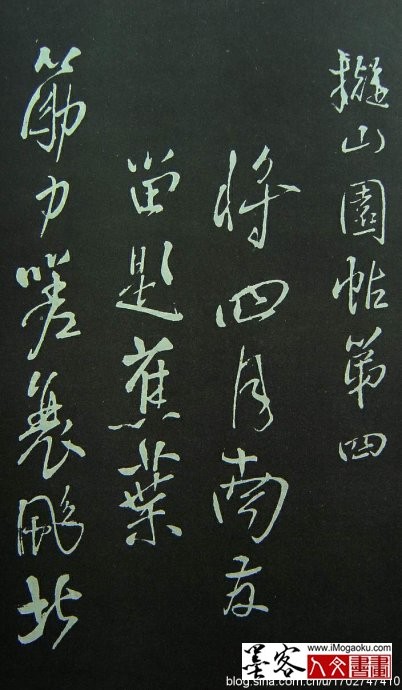 擬山園帖第四
將四月南
是蕉葉
筋力嗟衰 北
墨客
www.iMogaoku.com
人文書畫
blog.sina.com.cn/u/1702747410